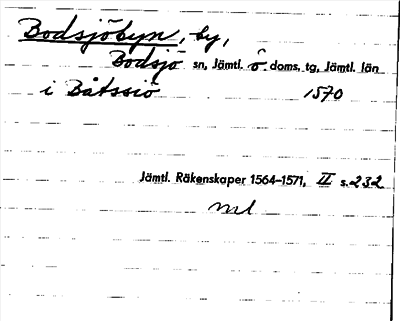 Bodsjöbyn, by,
Bodsjö sn, Jämtl. ö. doms. tg, Jämtl. län
i Båtssiö 1570
Jämtl. Räkenskaper 1564-1571, II s. 232